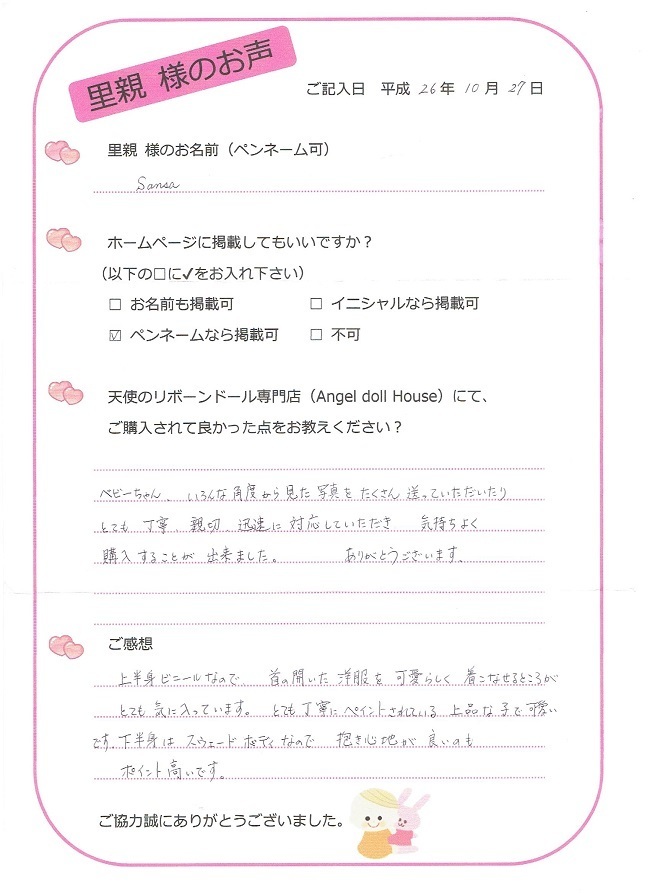 里親 様のお声
ご記入日 平成 26年 10月 27日
里親 様のお名前（ペンネーム可）
Sansa
ホームページに掲載してもいいですか？
（以下の□に✓をお入れ下さい）
□ お名前も掲載可 □ イニシャルなら掲載可
☑ ペンネームなら掲載可 □ 不可
天使のリボーンドール専門店（Angel doll House）にて、
ご購入されて良かった点をお教えください？
ベビーちゃん、いろんな角度から見た写真をたくさん送っていただいたり
とても 丁寧、親切、迅速に対応していただき 気持ちよく
購入することが 出来ました。 ありがとうございます。
ご感想
上半身ビニールなので 首の開いた洋服を可愛らしく着こなせるところが
とても気に入っています。 とても丁寧にペイントされている上品な子で可愛い
です。下半身は スウェードボディなので 抱き心地が良いのも
ポイント高いです。
ご協力誠にありがとうございました。